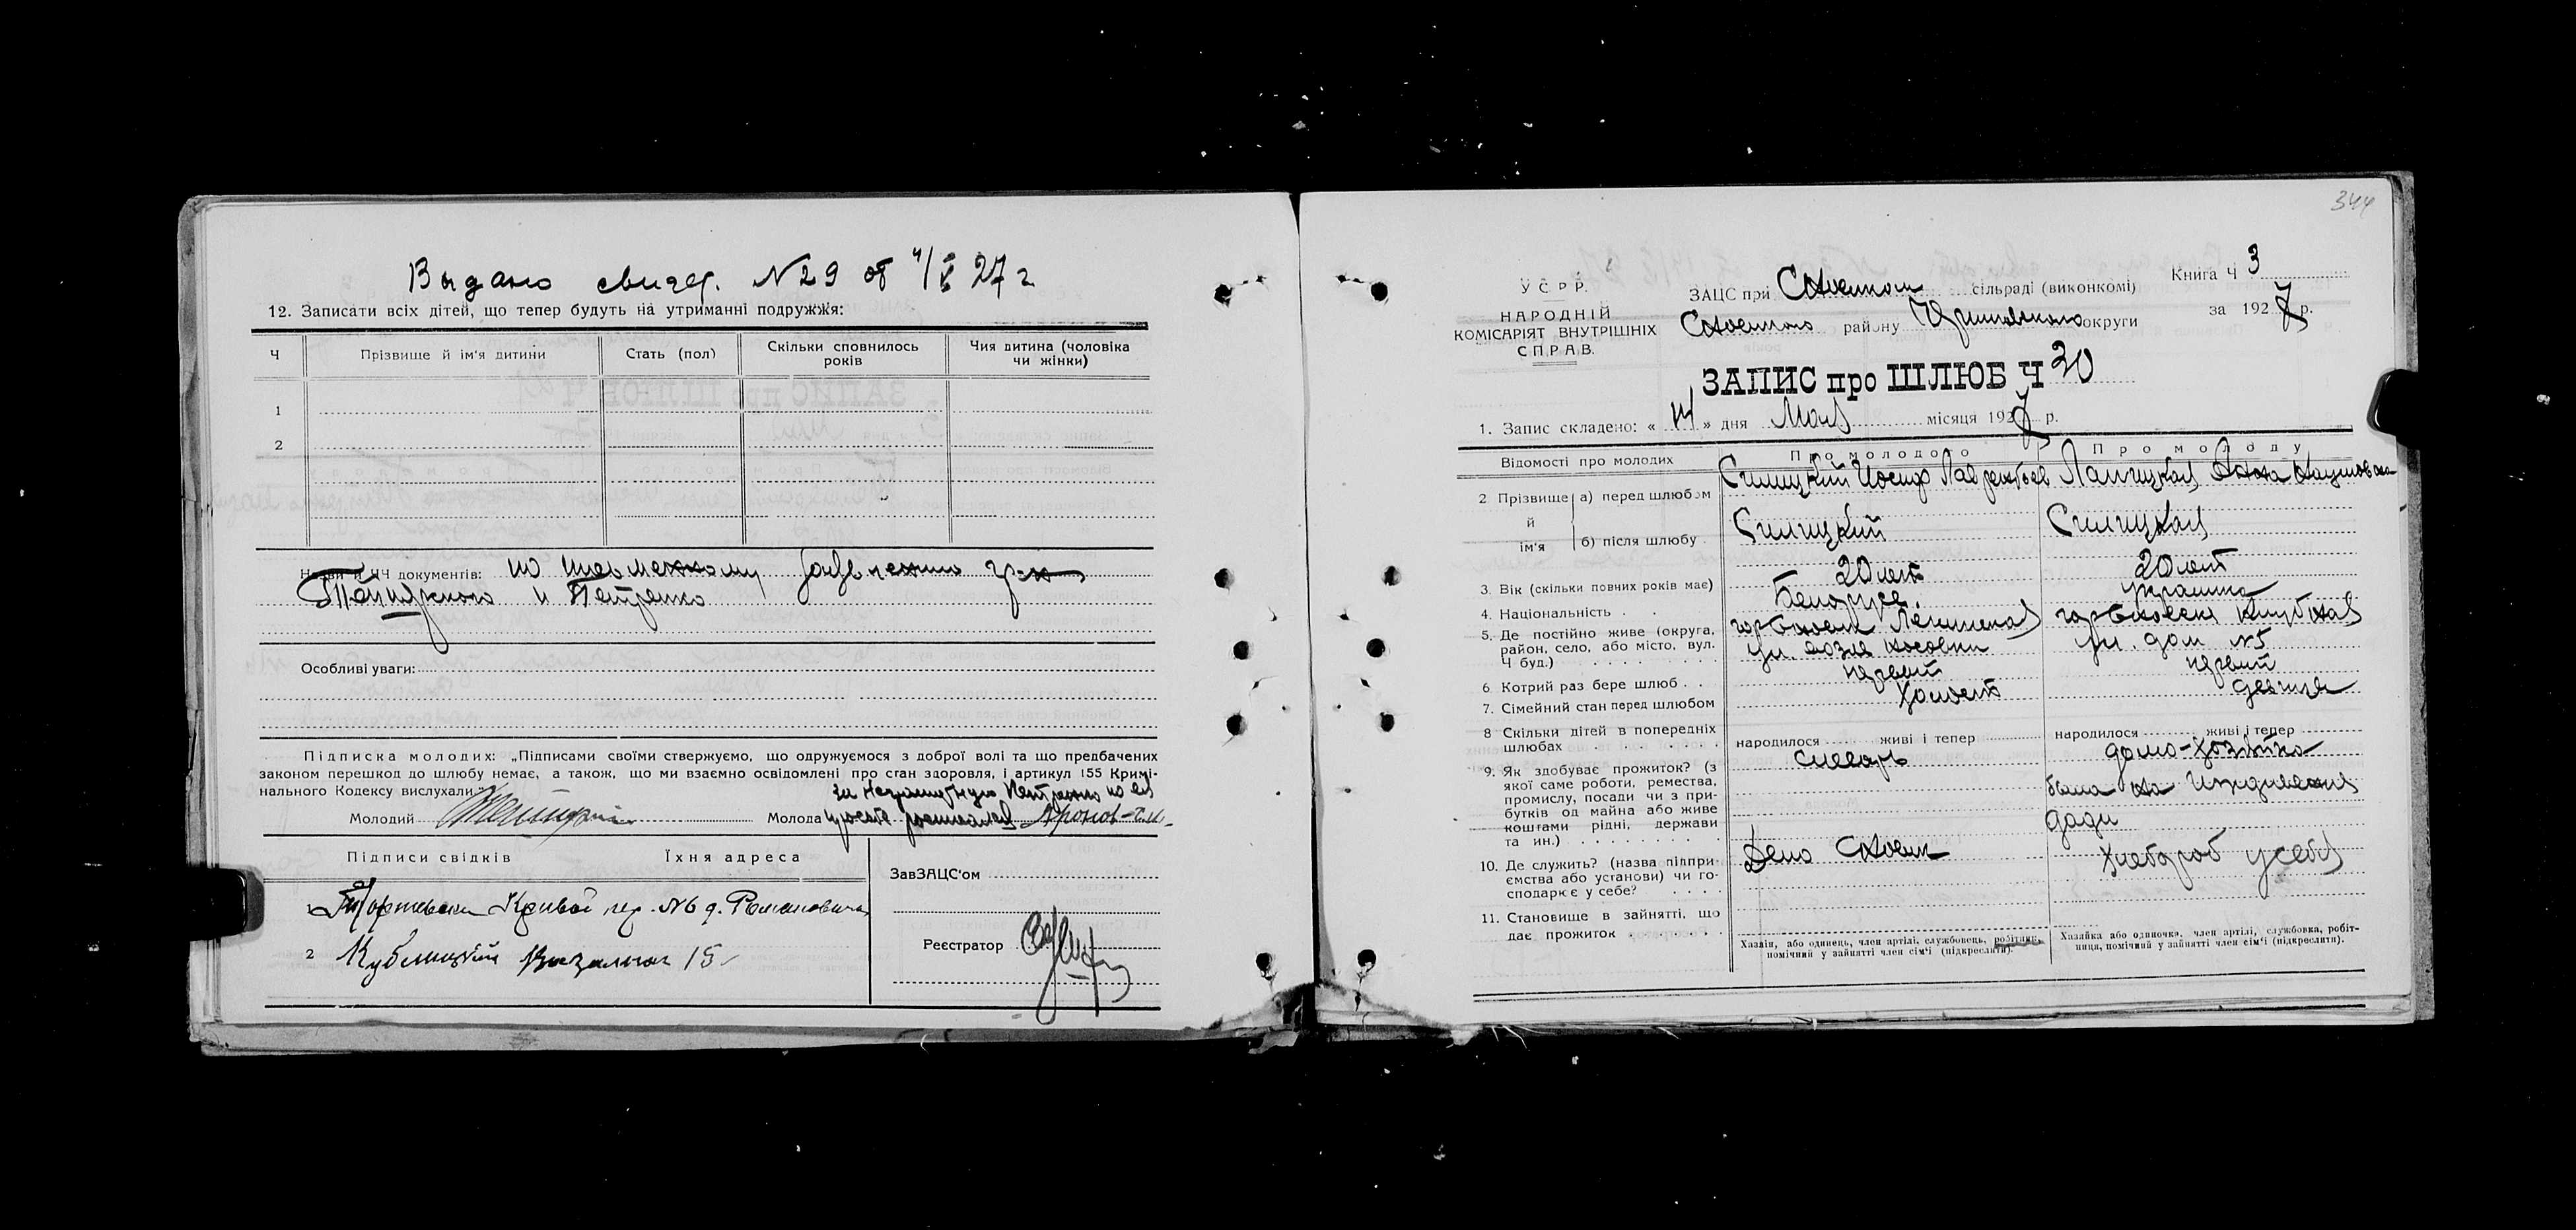 Выдано свидет. N 29 от 4/V 27 г
12. Записати всіх дітей, що тепер будуть на утриманні подружжя:
Ч
Прізвище й ім'я дитини
Стать (пол)
Скільки сповнилось років
Чия дитина (чоловіка чи жінки)
1
2
Назви й ЧЧ документів: по письменному заявлению гр-н
и Петренко
Особливі уваги:
Підписка молодих: „Підписами своїми стверджуємо, що одружуємося з доброї волі та що предбачених
законом перешкод до шлюбу немає, а також, що ми взаємно освідомлені про стан здоровля, і артикул 155 Кримі-
нального Кодексу вислухали."
за неграмотную Петренко по её
Молодий
Молода просьбе росписался
Підписи свідків
Їхня адреса
1 Кривой пер. N6 д. Романовича
2 Кублицкий Вокзальная 15
ЗавЗАЦС'ом
Реєстратор
344
УСРР.
НАРОДНІЙ
КОМІСАРІЯТ ВНУТРІШНІХ
СПРАВ.
ЗАЦС при Сновском сільраді (виконкомі)
Сновского району округи
Книга Ч 3
за 1927 р.
ЗАПИС про ШЛЮБ Ч 30
1. Запис складено: « 14 » дня Мая місяця 1927 р.
Відомості про молодих
Про молодого
Про молоду
2 Прізвище й ім'я
а) перед шлюбом
Силицкий Иосиф Лаврентьев
Лапицкая Анна Наумовна
б) після шлюбу
Силицкий
Силицкая
3. Вік (скільки повних років має)
20 лет
20 лет
4. Національність
Белорусс.
украинка
5. Де постійно живе (округа, район, село, або місто, вул. Ч буд.)
гор Сновск Ленинская
ул. возле
гор Сновск
ул. дом N5
6. Котрий раз бере шлюб
первый
первый
7. Сімейний стан перед шлюбом
Холост
девица
8 Скільки дітей в попередніх шлюбах
народилося живі і тепер
народилося живі і тепер
9. Як здобуває прожиток? (з якої саме роботи, ремества, промислу, посади чи з прибутків од майна або живе коштами рідні, держави та ин.)
слесарь
домо-хозяйка
была на иждивении
дяди
10. Де служить? (назва підприємства або установи) чи господарює у себе?
Депо Сновск
Хлебороб у себя
11. Становище в зайнятті, що дає прожиток
Хазяїн, або одинець, член артілі, службовець, робітник,
помічний у зайнятті член сім'ї (підкреслити).
Хазяйка або одиночка, член артілі, службовка, робіт-
ниця, помічний у зайнятті член сім'ї (підкреслити).